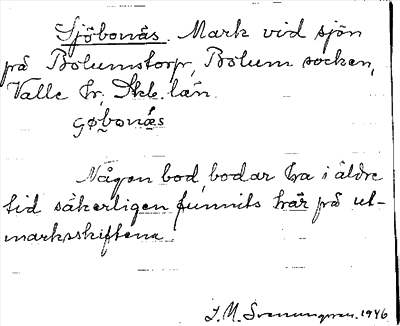 Sjöbonäs. Mark vid sjön
på Bolumstorp, Bolum socken,
Valle hr, Skb. län.
gøbonǻs
Någon bod, bodar ha i äldre
tid säkerligen funnits här på ut-
marksskiftena.
J. M. Svennungsson. 1946